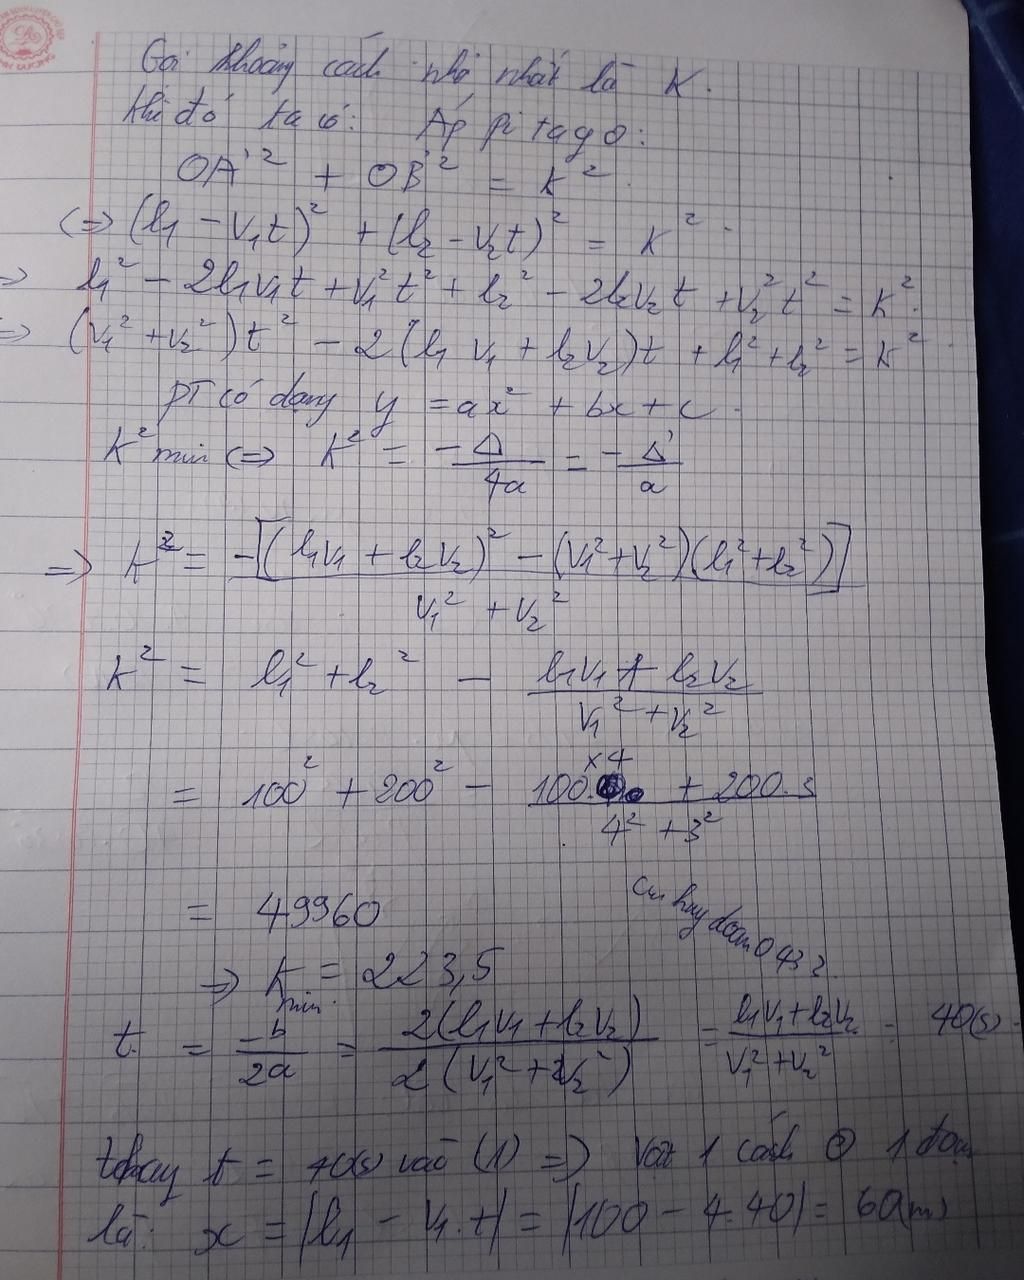 Gọi khoảng cách nhỏ nhất là K.
Khi đó ta có: Áp pi ta go:
OA'² + OB'² = K².
(=> (l₁ - v₁t)² + (l₂ - v₂t)² = K².
=> l₁² - 2l₁v₁t + v₁²t² + l₂² - 2l₂v₂t + v₂²t² = K².
=> (v₁² + v₂²)t² - 2(l₁v₁ + l₂v₂)t + l₁² + l₂² = K²
PT có dạng y = ax² + bx + c.
K² min (=> K² = -Δ/4a = -Δ'/a
=> K² = -[(l₁v₁ + l₂v₂)² - (v₁² + v₂²)(l₁² + l₂²)]/v₁² + v₂²
K² = l₁² + l₂² - l₁v₁ + l₂v₂/v₁² + v₂²
= 100² + 200² - 100.x4 + 200.3/4² + 3²
= 49960
=> Kmin = 223,5
t = -b/2a = 2(l₁v₁ + l₂v₂)/2(v₁² + v₂²) = l₁v₁ + l₂v₂/v₁² + v₂² = 40(s)
thay t = 40(s) vào (1) => vật 1 cách O 1 đoạn
là: x = |l₁ - v₁.t| = |100 - 4.40| = 60(m)